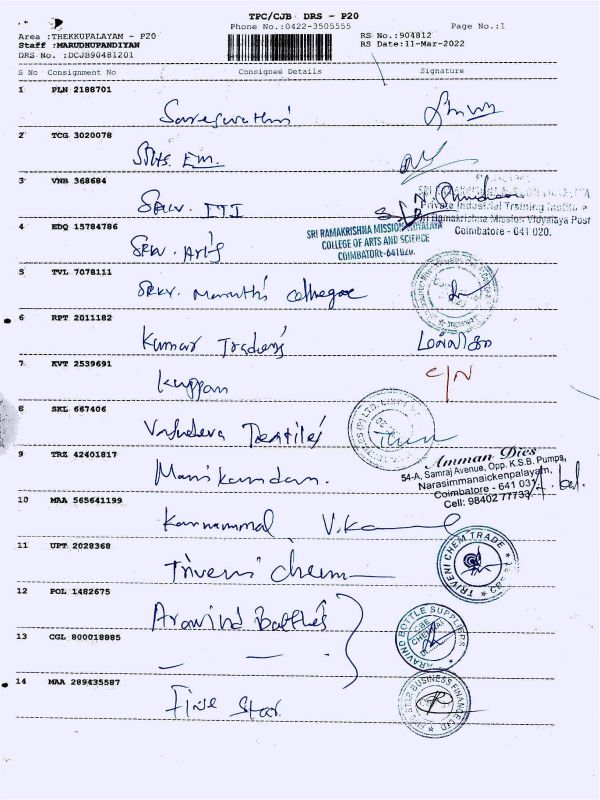 TPC/CJB DRS - P20
Phone No.:0422-3505555
Page No.:1
Area :THEKKUPALAYAM - P20
Staff :MARUDHUPANDIYAN
DRS No. :DCJB90481201
RS No.:904812
RS Date:11-Mar-2022
S No Consignment No Consignee Details Signature
1 PLN 2188701
Saraswathi
2 TCG 3020078
3 VNB 368684
SRKV. ITI
Private Industrial Training Institute
Sri Ramakrishna Mission Vidyalaya Post
Coimbatore - 641 020.
4 EDQ 15784786
SRKV. Arts
SRI RAMAKRISHNA MISSION VIDYALAYA
COLLEGE OF ARTS AND SCIENCE
COIMBATORE-641020.
5 TVL 7078111
SRKV. Maruthi College
6 RPT 2011182
Kumar Traders
7 KVT 2539691
Kuppan
C/N
8 SKL 667406
Vasudeva Textiles
9 TRZ 42401817
Manikandan.
Amman Dies
54-A, Samraj Avenue, Opp. K.S.B. Pumps,
Narasimmanaickenpalayam,
Coimbatore - 641 031
Cell: 98402 77733
10 MAA 565641199
Kannammal
11 UPT 2028368
Triveni Chem
TRIVENI CHEM TRADE
12 POL 1482675
Aravind Bottles
ARAVIND BOTTLE SUPPLIERS
13 CGL 800018885
14 MAA 289435587
Five Star
FIVE STAR BUSINESS FINANCE LTD